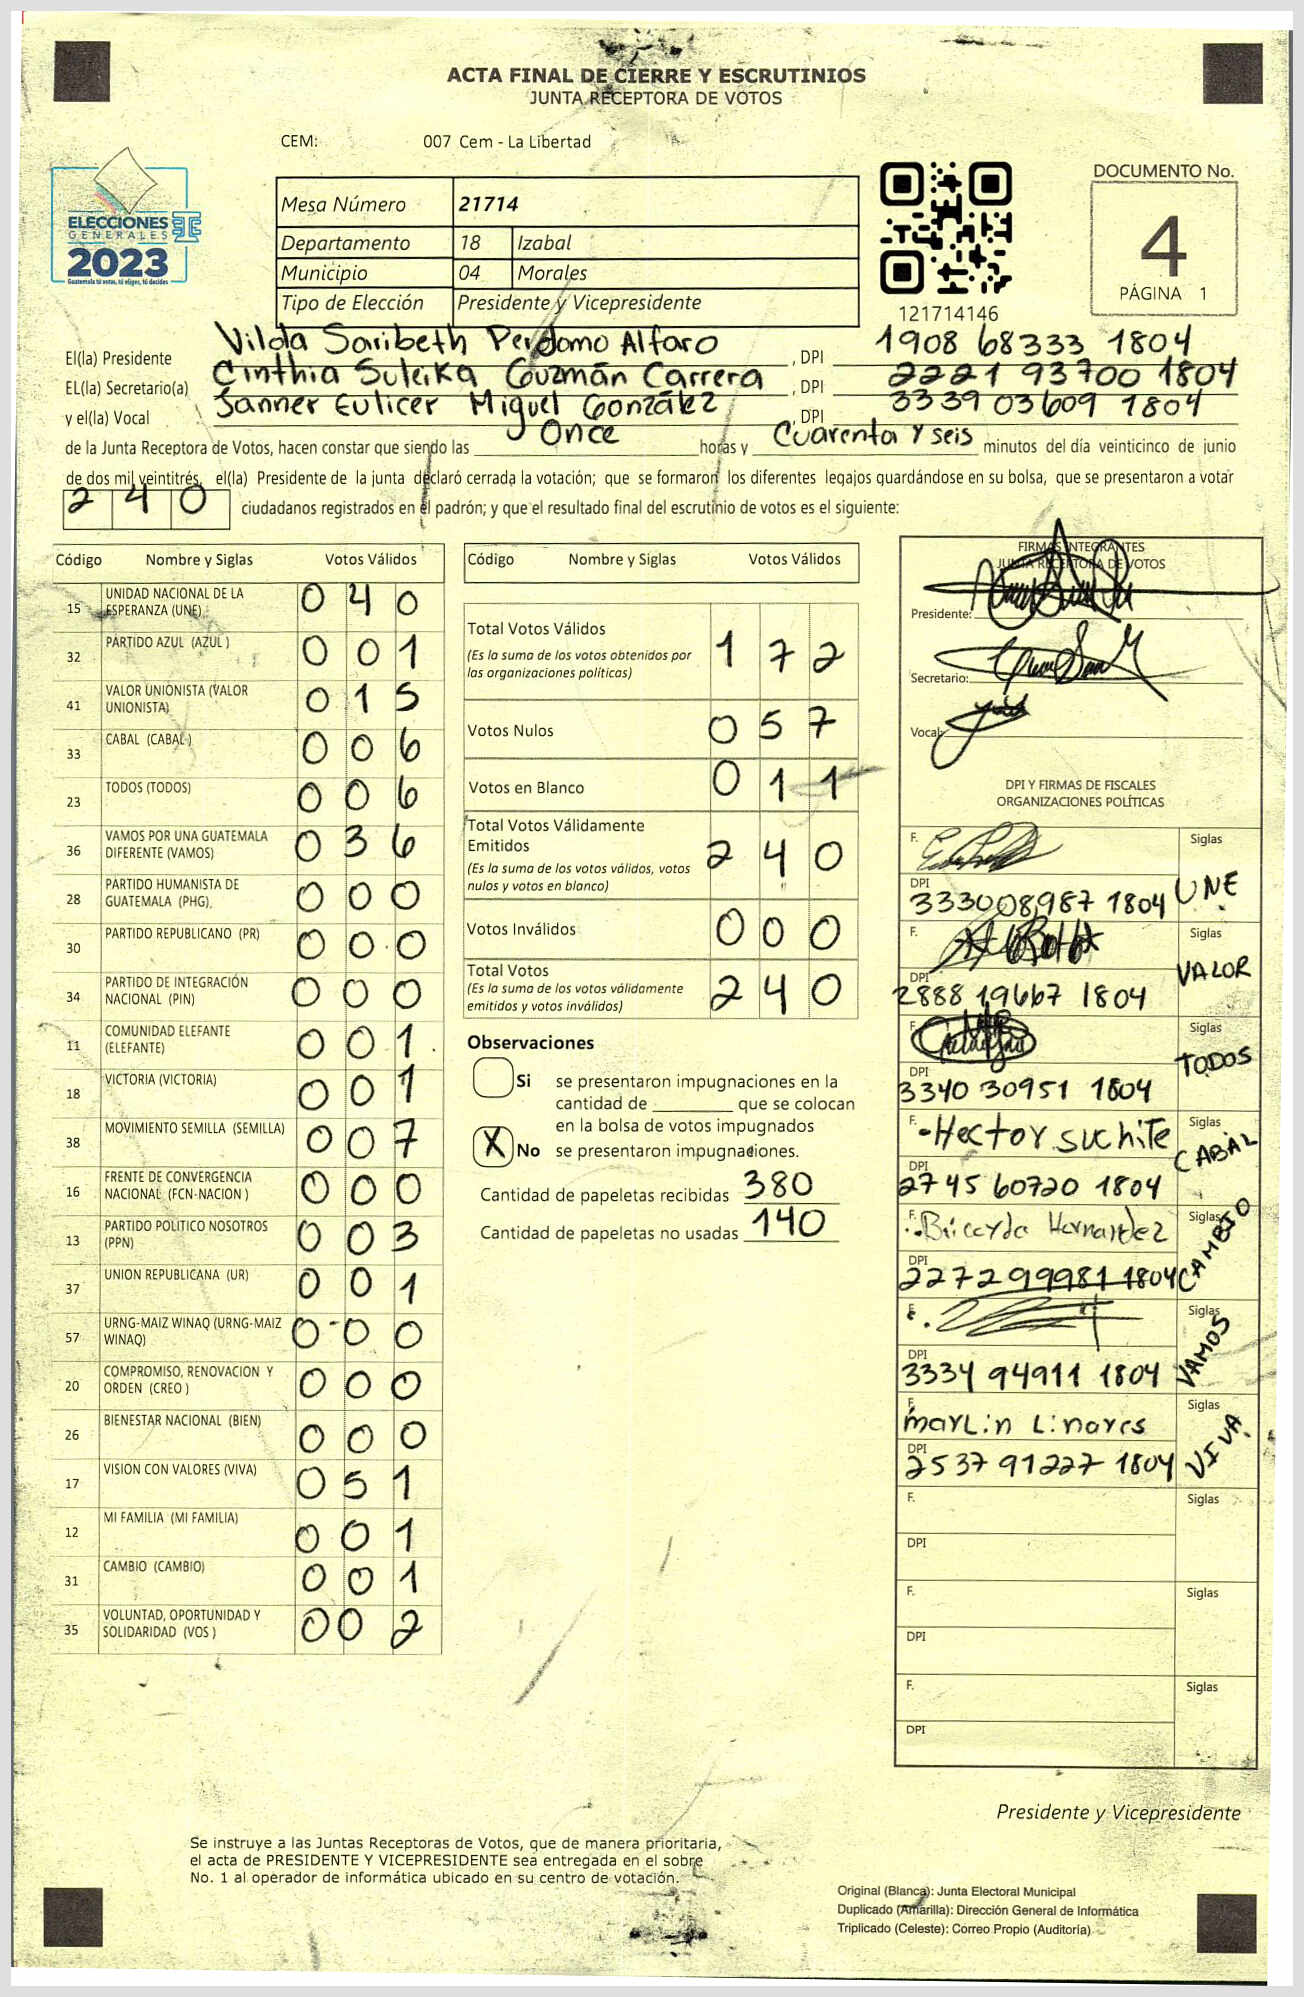 ACTA FINAL DE CIERRE Y ESCRUTINIOS
JUNTA RECEPTORA DE VOTOS
CEM: 007 Cem - La Libertad
ELECCIONES
GENERALES
2023
Guatemala tú votas, tú eliges, tú decides
Mesa Número 21714
Departamento 18 Izabal
Municipio 04 Morales
Tipo de Elección Presidente y Vicepresidente
121714146
DOCUMENTO No.
4
PÁGINA 1
El(la) Presidente Vilda Saribeth Perdomo Alfaro , DPI 1908 68333 1804
EL(la) Secretario(a) Cinthia Suleika Guzmán Carrera , DPI 2221 93700 1804
y el(la) Vocal Janner Eulicer Miguel González , DPI 3339 03609 1804
de la Junta Receptora de Votos, hacen constar que siendo las Once horas y Cuarenta y seis minutos del día veinticinco de junio
de dos mil veintitrés, el(la) Presidente de la junta declaró cerrada la votación; que se formaron los diferentes legajos guardándose en su bolsa, que se presentaron a votar
240 ciudadanos registrados en el padrón; y que el resultado final del escrutinio de votos es el siguiente:
Código Nombre y Siglas Votos Válidos
15 UNIDAD NACIONAL DE LA ESPERANZA (UNE) 0 4 0
32 PARTIDO AZUL (AZUL ) 0 0 1
41 VALOR UNIONISTA (VALOR UNIONISTA) 0 1 5
33 CABAL (CABAL ) 0 0 6
23 TODOS (TODOS) 0 0 6
36 VAMOS POR UNA GUATEMALA DIFERENTE (VAMOS) 0 3 6
28 PARTIDO HUMANISTA DE GUATEMALA (PHG) 0 0 0
30 PARTIDO REPUBLICANO (PR) 0 0 0
34 PARTIDO DE INTEGRACIÓN NACIONAL (PIN) 0 0 0
11 COMUNIDAD ELEFANTE (ELEFANTE) 0 0 1
18 VICTORIA (VICTORIA) 0 0 1
38 MOVIMIENTO SEMILLA (SEMILLA) 0 0 7
16 FRENTE DE CONVERGENCIA NACIONAL (FCN-NACION ) 0 0 0
13 PARTIDO POLITICO NOSOTROS (PPN) 0 0 3
37 UNION REPUBLICANA (UR) 0 0 1
57 URNG-MAIZ WINAQ (URNG-MAIZ WINAQ) 0 0 0
20 COMPROMISO, RENOVACION Y ORDEN (CREO ) 0 0 0
26 BIENESTAR NACIONAL (BIEN) 0 0 0
17 VISION CON VALORES (VIVA) 0 5 1
12 MI FAMILIA (MI FAMILIA) 0 0 1
31 CAMBIO (CAMBIO) 0 0 1
35 VOLUNTAD, OPORTUNIDAD Y SOLIDARIDAD (VOS ) 0 0 2
Código Nombre y Siglas Votos Válidos
Total Votos Válidos 1 7 2
(Es la suma de los votos obtenidos por
las organizaciones políticas)
Votos Nulos 0 5 7
Votos en Blanco 0 1 1
Total Votos Válidamente
Emitidos 2 4 0
(Es la suma de los votos válidos, votos
nulos y votos en blanco)
Votos Inválidos 0 0 0
Total Votos 2 4 0
(Es la suma de los votos válidamente
emitidos y votos inválidos)
Observaciones
Si se presentaron impugnaciones en la
cantidad de ________ que se colocan
en la bolsa de votos impugnados
X No se presentaron impugnaciones.
Cantidad de papeletas recibidas 380
Cantidad de papeletas no usadas 140
FIRMAS INTEGRANTES
JUNTA RECEPTORA DE VOTOS
Presidente:
Secretario:
Vocal:
DPI Y FIRMAS DE FISCALES
ORGANIZACIONES POLÍTICAS
F. Siglas UNE
DPI 333008987 1804
F. Siglas VALOR
DPI 2888 19667 1804
F. Siglas TODOS
DPI 3340 30951 1804
F. Hector suchite Siglas CABAL
DPI 2745 60720 1804
F. Hernandez Siglas CAMBIO
DPI 2272 99981 1804
F. Siglas VAMOS
DPI 3334 94911 1804
F. Marlin Linares Siglas VIVA
DPI 2537 91227 1804
F. Siglas
DPI
F. Siglas
DPI
F. Siglas
DPI
Presidente y Vicepresidente
Se instruye a las Juntas Receptoras de Votos, que de manera prioritaria,
el acta de PRESIDENTE Y VICEPRESIDENTE sea entregada en el sobre
No. 1 al operador de informática ubicado en su centro de votación.
Original (Blanca): Junta Electoral Municipal
Duplicado (Amarilla): Dirección General de Informática
Triplicado (Celeste): Correo Propio (Auditoría)